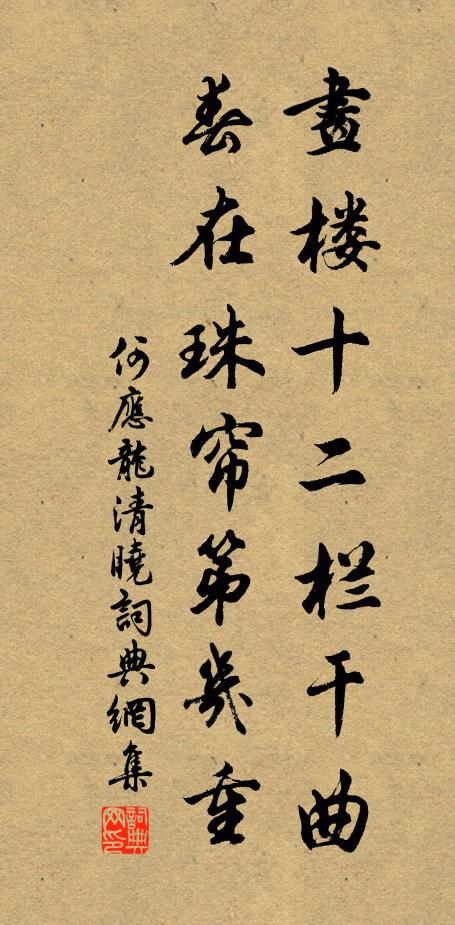 畫楼十二栏干曲
春在珠帘第幾重
何應龍清曉詞典網集
詞典网印